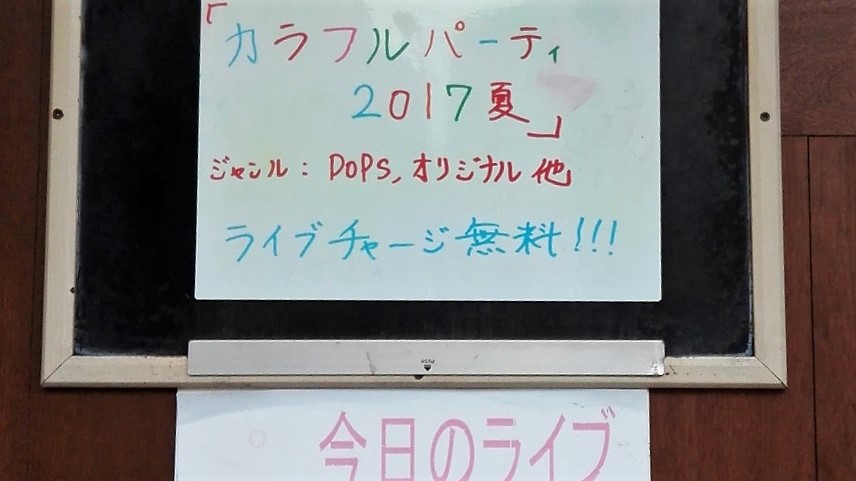 「カラフルパーティ
2017夏」
ジャンル：POPS,オリジナル他
ライブチャージ無料!!!
PUSH
今日のライブ